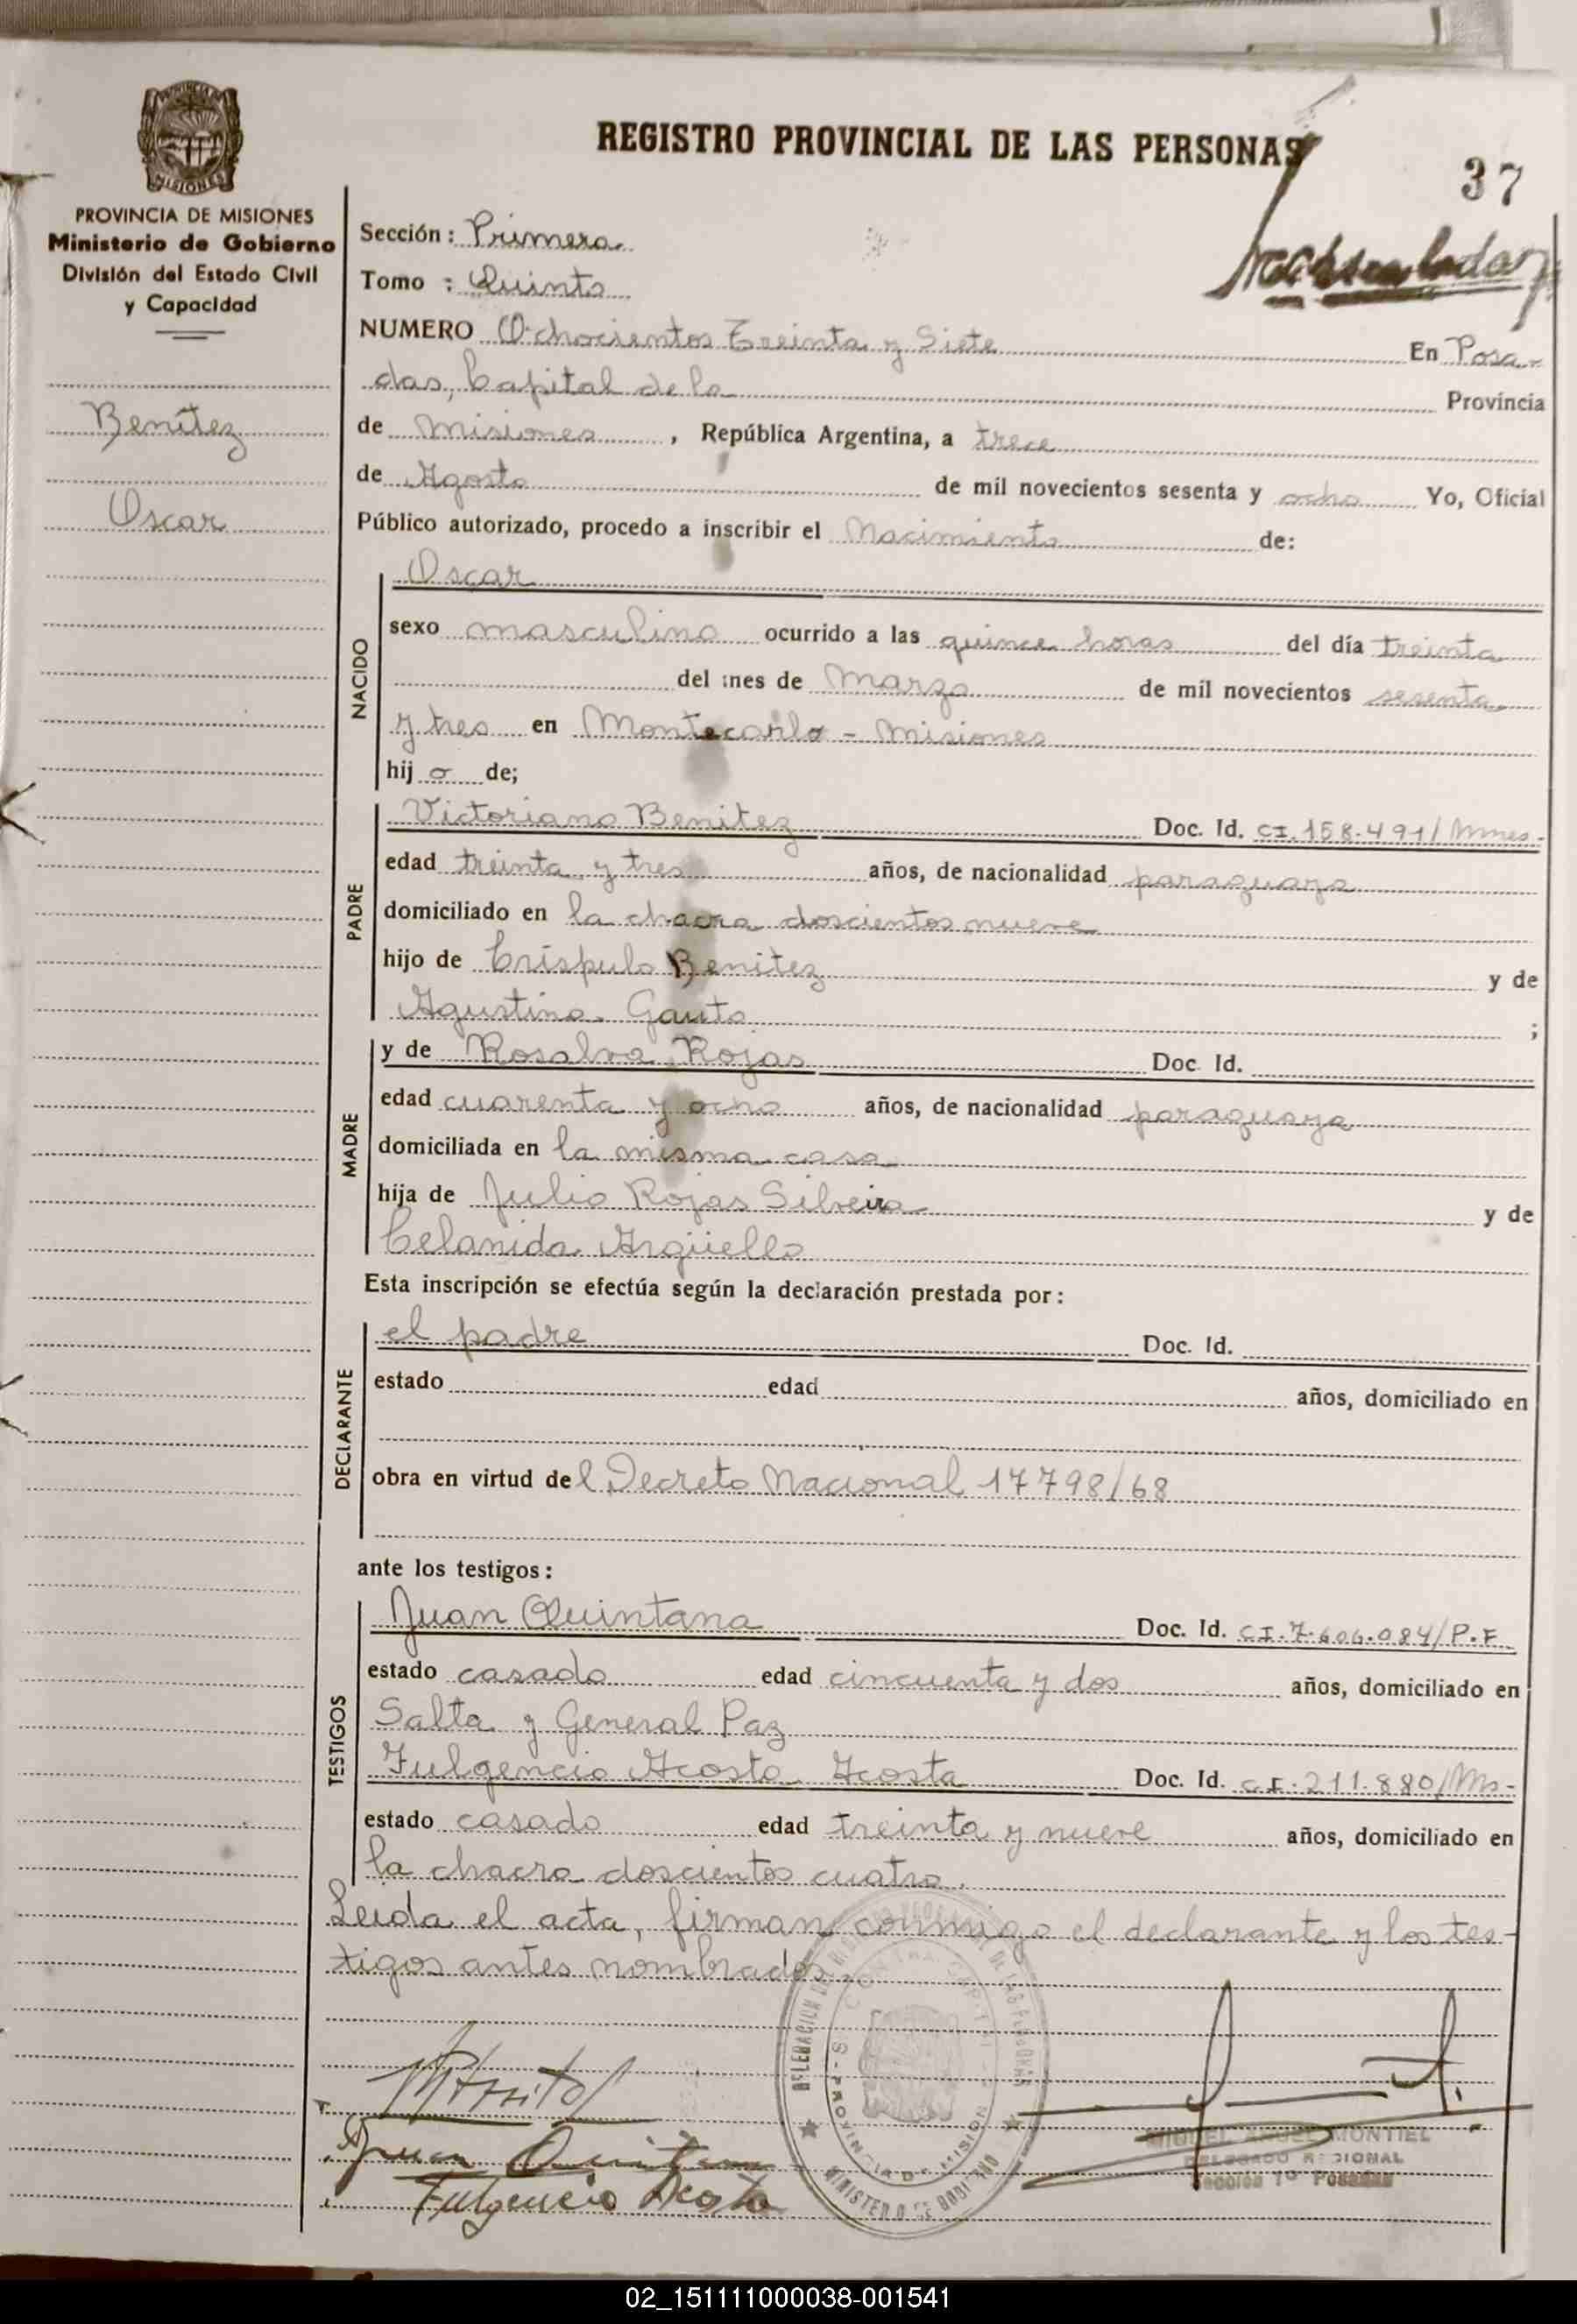 REGISTRO PROVINCIAL DE LAS PERSONAS
37
PROVINCIA DE MISIONES
Ministerio de Gobierno
División del Estado Civil
y Capacidad
Benitez
Oscar
Sección: Primera
Tomo : Quinto
NUMERO Ochocientos Treinta y Siete En Posa-
das, Capital de la Provincia
de Misiones, República Argentina, a trece
de Agosto de mil novecientos sesenta y ocho Yo, Oficial
Público autorizado, procedo a inscribir el Nacimiento de:
NACIDO
Oscar
sexo masculino ocurrido a las quince horas del día treinta
del mes de Marzo de mil novecientos sesenta
y tres en Montecarlo - Misiones
hijo de;
PADRE
Victoriano Benitez Doc. Id. CI.158.491/Mnes-
edad treinta y tres años, de nacionalidad paraguaya
domiciliado en la chacra doscientos nueve
hijo de Críspulo Benitez y de
Agustina Gauto ;
MADRE
y de Rosalva Rojas Doc. Id.
edad cuarenta y ocho años, de nacionalidad paraguaya
domiciliada en la misma casa
hija de Julio Rojas Silveira y de
Celanida Argüello
Esta inscripción se efectúa según la declaración prestada por:
DECLARANTE
el padre Doc. Id.
estado edad años, domiciliado en
obra en virtud del Decreto Nacional 17798/68
ante los testigos:
TESTIGOS
Juan Quintana Doc. Id. CI.7.606.084/P.F.
estado casado edad cincuenta y dos años, domiciliado en
Salta y General Paz
Fulgencio Acosta Acosta Doc. Id. CI.211.880/Ms-
estado casado edad treinta y nueve años, domiciliado en
la chacra doscientos cuatro.
Leida el acta, firman conmigo el declarante y los tes-
tigos antes nombrados.
Juan Quintana
Fulgencio Acosta
MIGUEL ANGEL MONTIEL
DELEGADO REGIONAL
Sección 1º Posadas
02_151111000038-001541